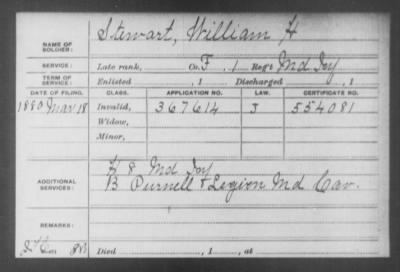 Stewart, William H
NAME OF SOLDIER:
SERVICE: Late rank, Co. F, 1 Reg't Md Inf
TERM OF SERVICE: Enlisted , 1 Discharged , 1
DATE OF FILING. CLASS. APPLICATION NO. LAW. CERTIFICATE NO.
1880 Mar 18 Invalid, 367614 J 554081
Widow,
Minor,
K 8 Md Inf
ADDITIONAL SERVICES: B Purnell's Legion Md Cav.
REMARKS:
Died , 1 , at